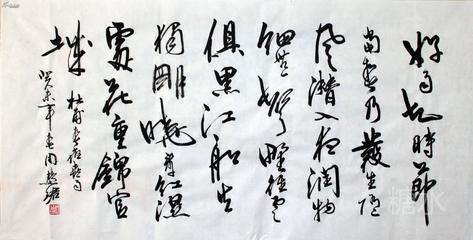 好雨知時節
當春乃發生隨
風潛入夜潤物
細無聲野徑雲
俱黑江船火
獨明曉看紅濕
處花重錦官
城 杜甫春夜喜雨
癸未年
糖水